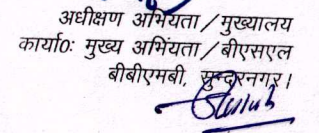 अधीक्षण अभियता/मुख्यालय
कार्या0: मुख्य अभिंयता/बीएसएल
बीबीएमबी, सुन्दरनगर।